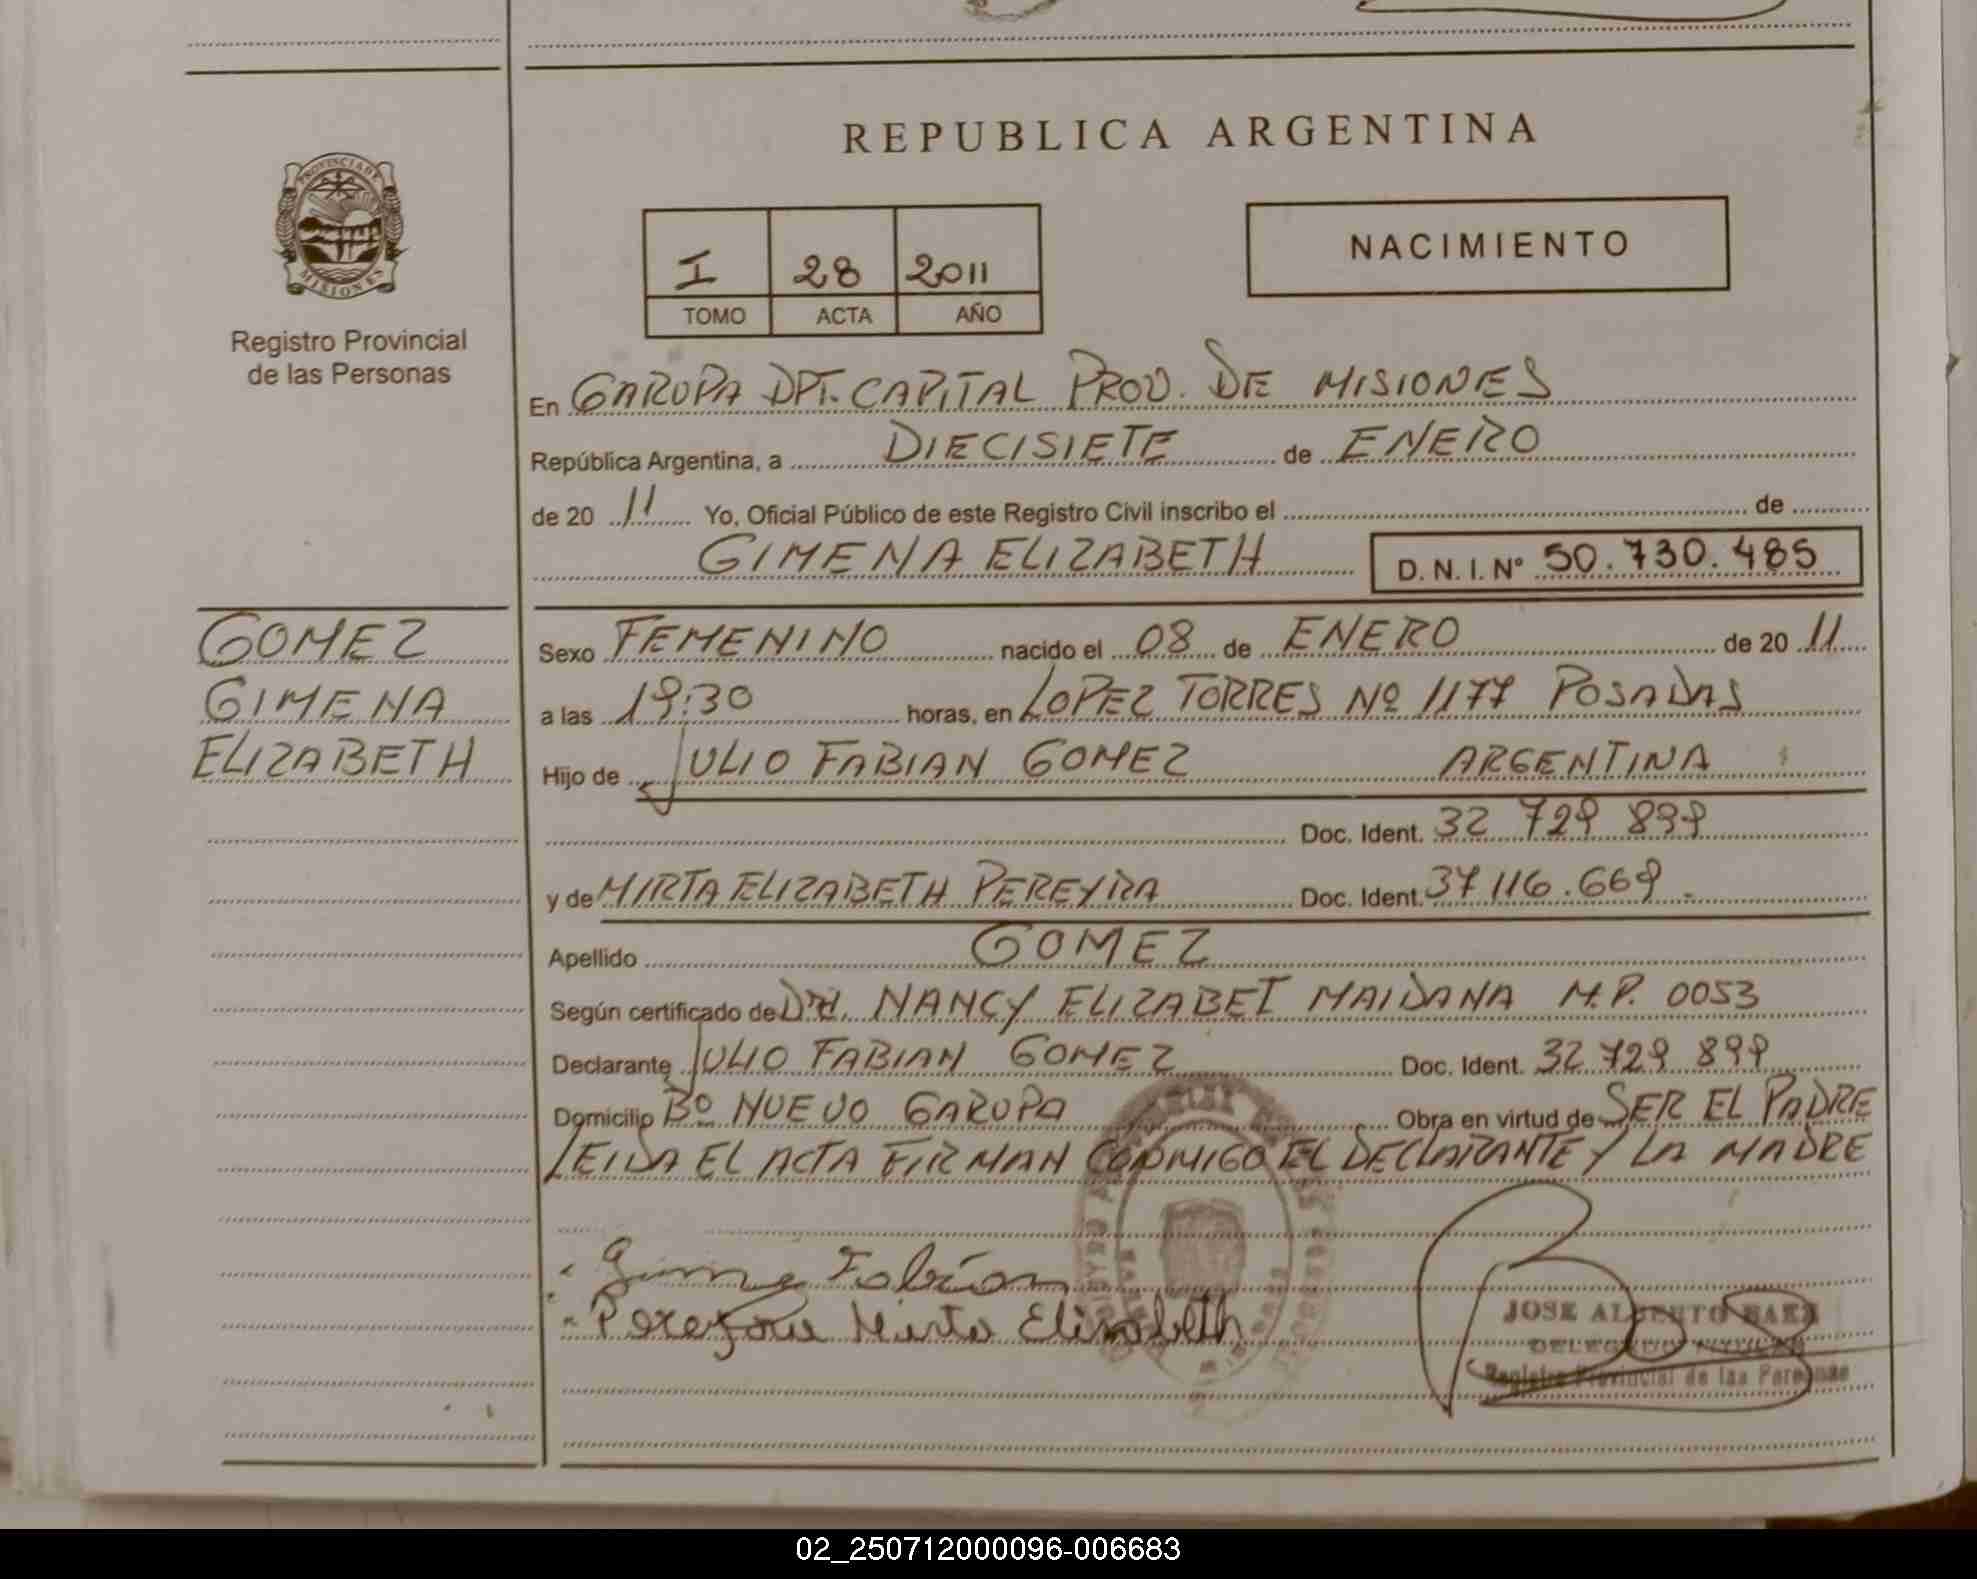 REPUBLICA ARGENTINA
PROVINCIA DE
MISIONES
Registro Provincial
de las Personas
I 28 2011
TOMO ACTA AÑO
NACIMIENTO
En GARUPA DPT. CAPITAL PROV. DE MISIONES
República Argentina, a DIECISIETE de ENERO
de 20 11 Yo, Oficial Público de este Registro Civil inscribo el de
GIMENA ELIZABETH D. N. I. Nº 50.730.485
GOMEZ
GIMENA
ELIZABETH
Sexo FEMENINO nacido el 08 de ENERO de 20 11
a las 19:30 horas, en LOPEZ TORRES Nº 1177 POSADAS
Hijo de JULIO FABIAN GOMEZ ARGENTINA
Doc. Ident. 32 729 899
y de MIRTA ELIZABETH PEREYRA Doc. Ident. 37 116.669.-
Apellido GOMEZ
Según certificado de DRA. NANCY ELIZABET MAIDANA M.P. 0053
Declarante JULIO FABIAN GOMEZ Doc. Ident. 32 729 899
Domicilio Bº NUEVO GARUPA Obra en virtud de SER EL PADRE
LEIDA EL ACTA FIRMAN CONMIGO EL DECLARANTE Y LA MADRE
Fabián
Pereyra Mirta Elizabeth
JOSE ALBERTO BAEZ
DELEGADO TITULAR
Registro Provincial de las Personas
02_250712000096-006683